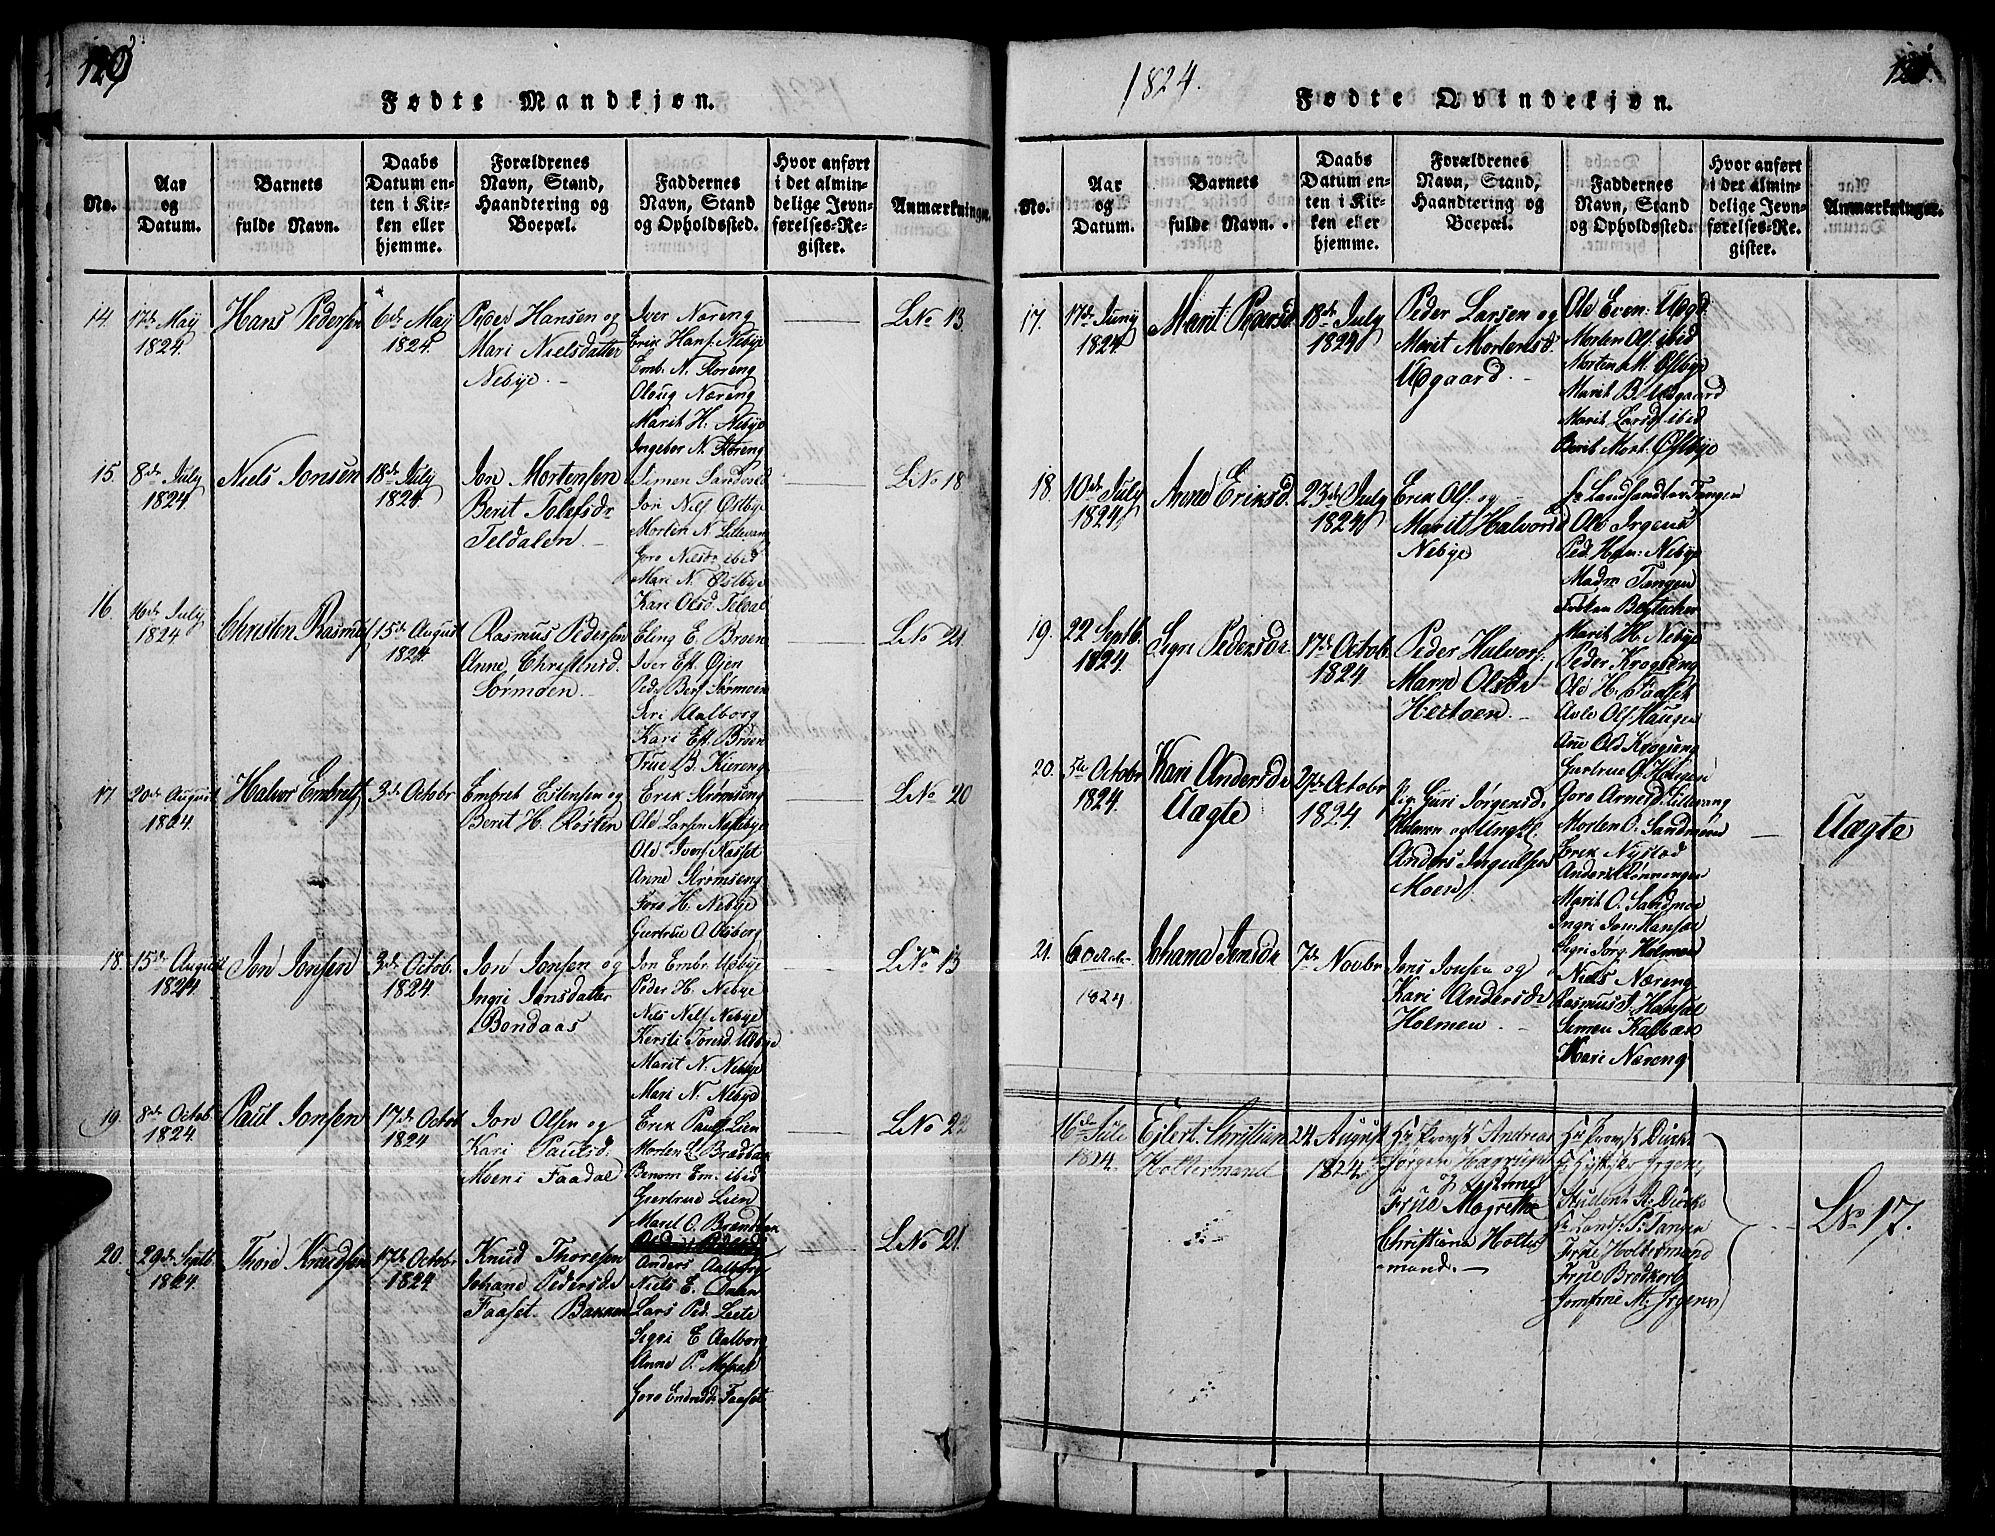 120
Fødte Mandkjøn.
No.
Aar
og
Datum.
Barnets
fulde Navn.
Daabs
Datum en-
ten i Kir-
ken eller
hjemme.
Forældrenes
Navn, Stand,
Haandtering og
Boepæl.
Faddernes
Navn, Stand
og Opholdssted.
Hvor anført
i det almin-
delige Jevn-
førelses-Re-
gister.
Anmærkninger.
14.
17de Maij
1824.
Hans Pedersen
6de Maij
1824.
Peder Hansen og
Mari Nielsdatter
Nebye.
Iver Næreng
Erik Hans. Nebye
Emb. N. Floreng
Oloug Næreng
Marit H. Nebye
Ingebor N. Floreng
LNo 13.
15.
8de July
1824.
Niels Jonsen
18de July
1824.
Jon Mortensen
Berit Tolefsdr
Teldalen
Simen Sandvold
Jon Nils. Østbye
Morten N. Lillevang
Goro Nilsdr ibid
Mari N. Østbye
Kari Olsd. Teldal
LNo 18
16
16de July
1824
Christen Rasmus
15de August
1824.
Rasmus Pedersen
Anne Christensd.
Sørmoen
Eling E. Broen
Iver Est. Øien
Ped. Bers. Sørmoen
Siri Aalborg
Kari Est. Broen
True B. Kiereng
LNo 21
17
20de August
1824.
Halvor Embrets
3de Octobr
Embret Estensen og
Berit H. Rosten
Erik Strømseng
Ole Larsen Nebye
Ole Ivers. Nasset
Anne Strømseng
Goro H. Nebye
Giertrue O. Aasberg
LNo 20
18.
15de August
1824
Jon Jonsen
3de Octob.
1824.
Jon Jonsen og
Ingri Jonsdatter
Bondaas
Jon Embr. Udbye
Peder H. Nebye
Nils Nils. Nebye
Kersti Toresd. Udbye
Marit N. Nebye
Mari N. Nebye
LNo 13
19.
8de Octob.
1824.
Paul Jonsen
17de Octob.
1824
Jon Olsen og
Kari Paulsd.
Moen i Faadal
Erik Pauls. Lien
Morten E. Brædbak
Benom Em. ibid
Giertrue Lien
Maret O. Brændbak
LNo 22
20.
29de Septb.
1824.
Thore Knudsen
17de Octobr
1824
Knud Thoresen
Johane Pedersdr
Faaset. Bakken
Anders Aalborg
Niels E. Dalen
Lars Ped. Leete
Sigri E. Aalborg
Anne P. Moshal
Goro Endresd. Faaset
LNo 21.
1824.
Fødte Qvindekjøn.
No.
Aar
og
Datum.
Barnets
fulde Navn.
Daabs
Datum en-
ten i Kir-
ken eller
hjemme.
Forældrenes
Navn, Stand,
Haandtering og
Boepæl.
Faddernes
Navn, Stand
og Opholdssted.
Hvor anført
i det almin-
delige Jevn-
førelses-Re-
gister.
Anmærkninger.
17.
17de Juny
1824
Marit Pedersd.
18de July
1824
Peder Larsen og
Marit Mortensd.
Udgaard.
Ole Even: Udgd.
Morten Ols. ibid
Morten M. Østbye
Marit B. Udgaard
Marit Larsd. ibid
Berit Mort. Østbye
18
10de July
1824
Anne Eriksd.
23de July
1824
Erik Ols. og
Marit Halvorsd
Nebye
Hr Landhandler Tangen
Ole Irgens
Ped. Han: Nebye
Madm Tangen
Frøken
Marit H. Nebye
19.
22 Septb.
1824
Sigri Pedersdr
17de Octob.
1824
Peder Halvors.
Marn Olsdr
Hertoen.
Peder Krogseng
Ole H. Faaset
Avle Ols. Haugen
Ane Old Krogseng
Giertrue O. Haugen
20.
5te Octobr
1824.
Kari Andersdr
Uægte
27de Octobr
1824.
Pige Guri Jørgensdr
Holmen og Ungkl.
Anders Ingulfsen
Moen
Goro Arnesd. Lillevang
Morten O. Sandmoen
Erik Nystad
Anders Rønningen
Marit O. Sandmoe
Ingri Jons. Hansæl
Sigri Jørg. Holmen
Uægte
21.
6 Octobr
1824
Johane Jensdr
7de Novbr
Jens Jonsen og
Kari Andersdr
Holmen
Niels Næreng
Rasmus J. Hansæl
Simen Kalbæk
Kari Næreng
16de Juli
1824.
Eilert Christian
Holtermand
24 August
1824
Hr Provst Andreas
Jørgen Hagrup
Frue Magrethe
Christiana Holter-
mand.
Hr Provst Dircks
Hr Irgens
Student R. Dircks
Hr Tangen
Frue Holtermand
Frue Brodkorb
Jomfrue M. Irgens
LNo 17.